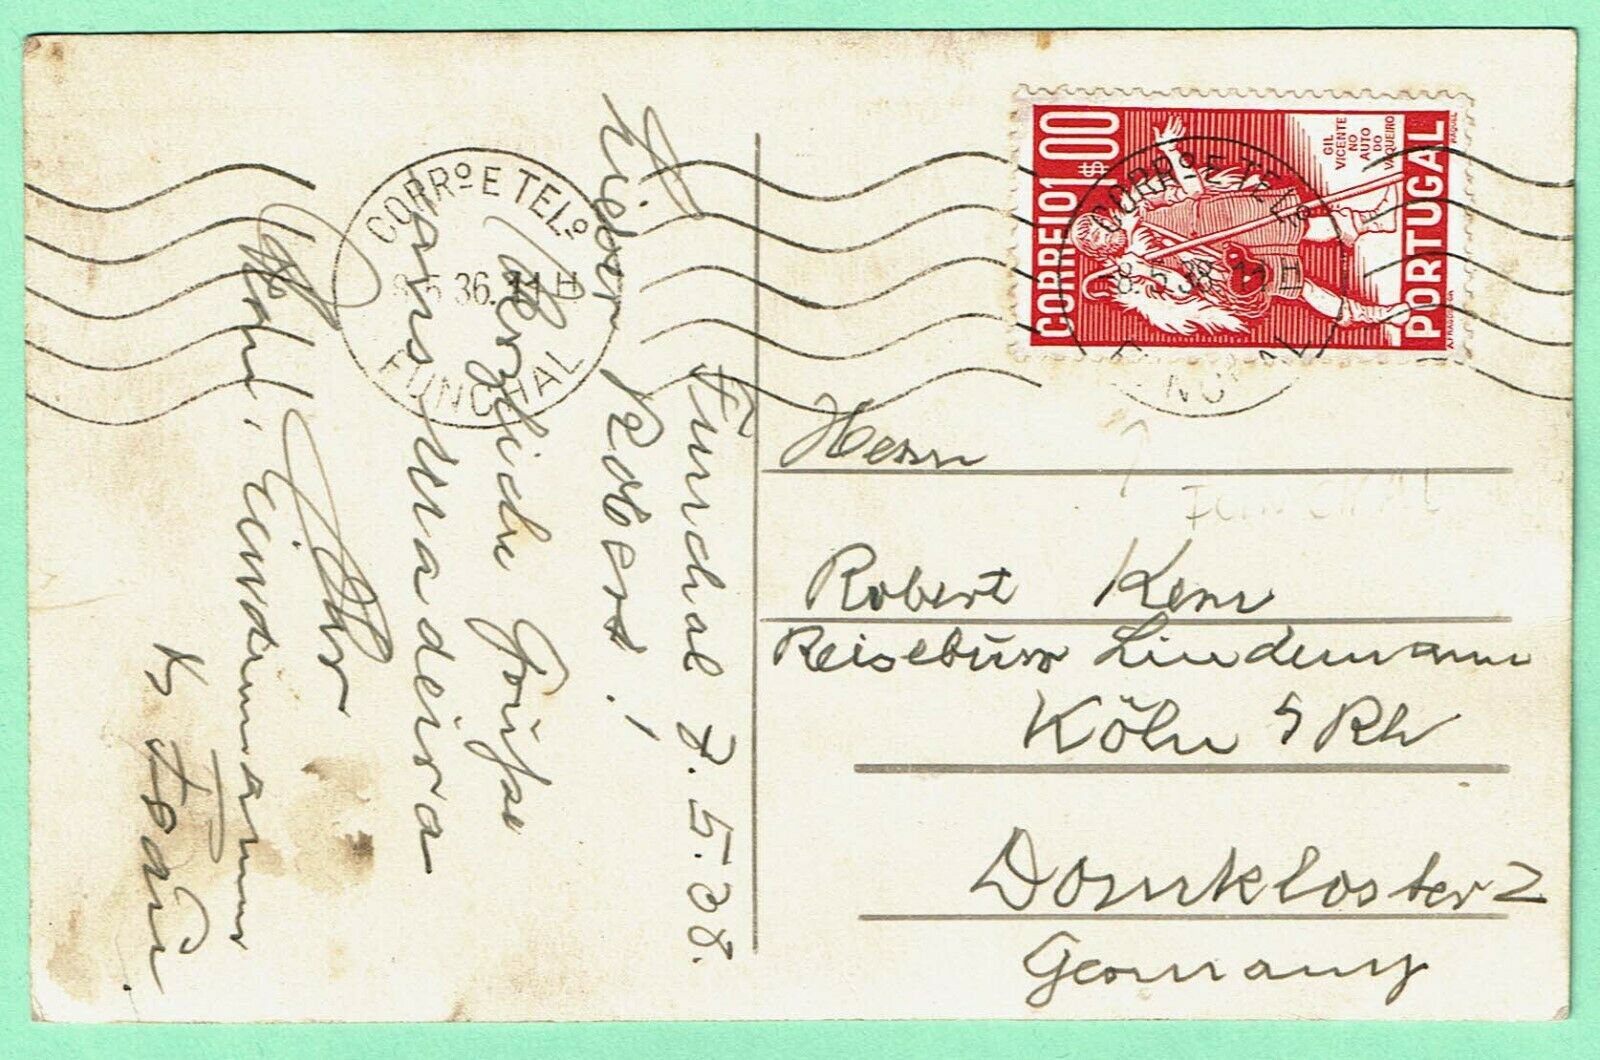 Funchal 7. 5. 38.
Lieber
Robert!
Herzliche Grüße
aus Madeira
Ihr
K
CORRº E TELº
8.5.36.11 H
FUNCHAL
CORREIO 1$00
GIL
VICENTE
NO
AUTO
DO
VAQUEIRO
PORTUGAL
CORRº E TELº
8.5.38 11 H
Herrn
FUNCHAL
Robert Kern
Reisebüro Lindemann
Köln a Rh
Domkloster 2
Germany